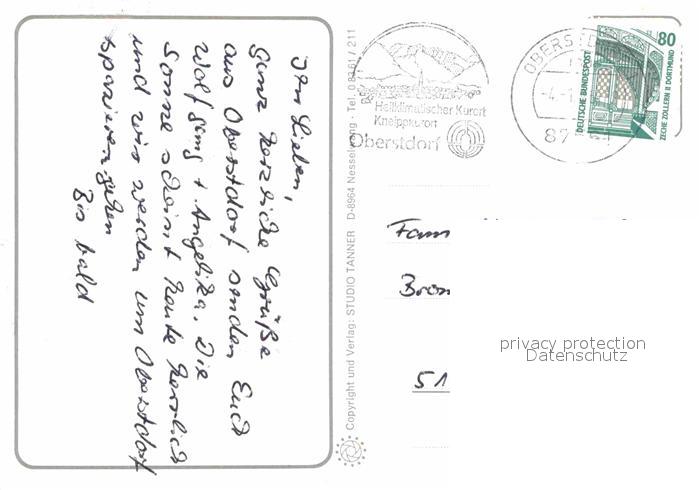 Ihr Lieben,
ganz herzliche Grüße
aus Oberstdorf senden Euch
Wolfgang + Angelika. Die
Sonne scheint heute herrlich
und wir werden um Oberstdorf
spazieren gehen
Bis bald
Copyright und Verlag: STUDIO TANNER D-8964 Nesselwang · Tel. 0 83 61 / 211
Heilklimatischer Kurort
Kneippkurort
Oberstdorf
OBERST
87
80
DEUTSCHE BUNDESPOST
ZECHE ZOLLERN II DORTMUND
Fam
Bron
51
privacy protection
Datenschutz